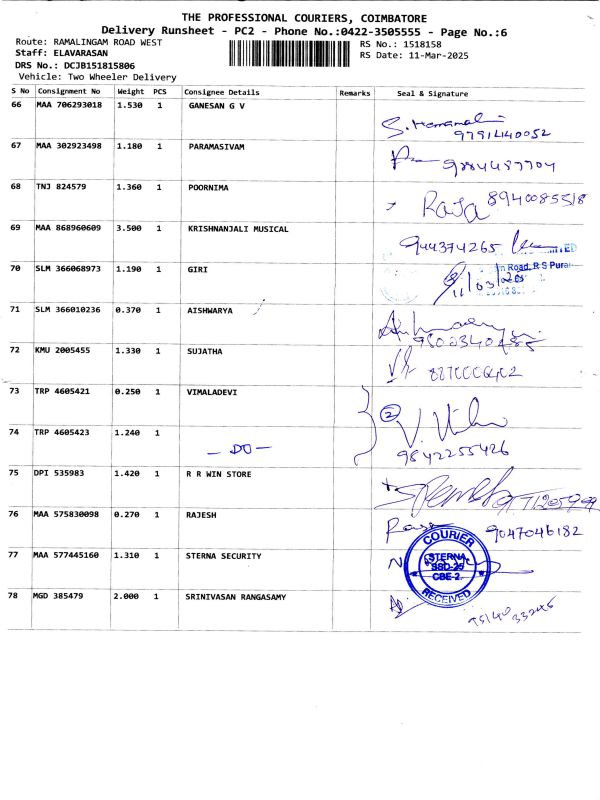 THE PROFESSIONAL COURIERS, COIMBATORE
Delivery Runsheet - PC2 - Phone No.:0422-3505555 - Page No.:6
Route: RAMALINGAM ROAD WEST RS No.: 1518158
Staff: ELAVARASAN RS Date: 11-Mar-2025
DRS No.: DCJB151815806
Vehicle: Two Wheeler Delivery
S No Consignment No Weight PCS Consignee Details Remarks Seal & Signature
66 MAA 706293018 1.530 1 GANESAN G V
67 MAA 302923498 1.180 1 PARAMASIVAM
68 TNJ 824579 1.360 1 POORNIMA
Raja 8940085518
69 MAA 868960609 3.500 1 KRISHNANJALI MUSICAL
944374265
70 SLM 366068973 1.190 1 GIRI
Road, R S Pura
71 SLM 366010236 0.370 1 AISHWARYA
72 KMU 2005455 1.330 1 SUJATHA
73 TRP 4605421 0.250 1 VIMALADEVI
2
74 TRP 4605423 1.240 1
- DO -
9842255426
75 DPI 535983 1.420 1 R R WIN STORE
76 MAA 575830098 0.270 1 RAJESH
9047046182
77 MAA 577445160 1.310 1 STERNA SECURITY
COURIER
STERNA
SSD-25
CBE-2
RECEIVED
78 MGD 385479 2.000 1 SRINIVASAN RANGASAMY